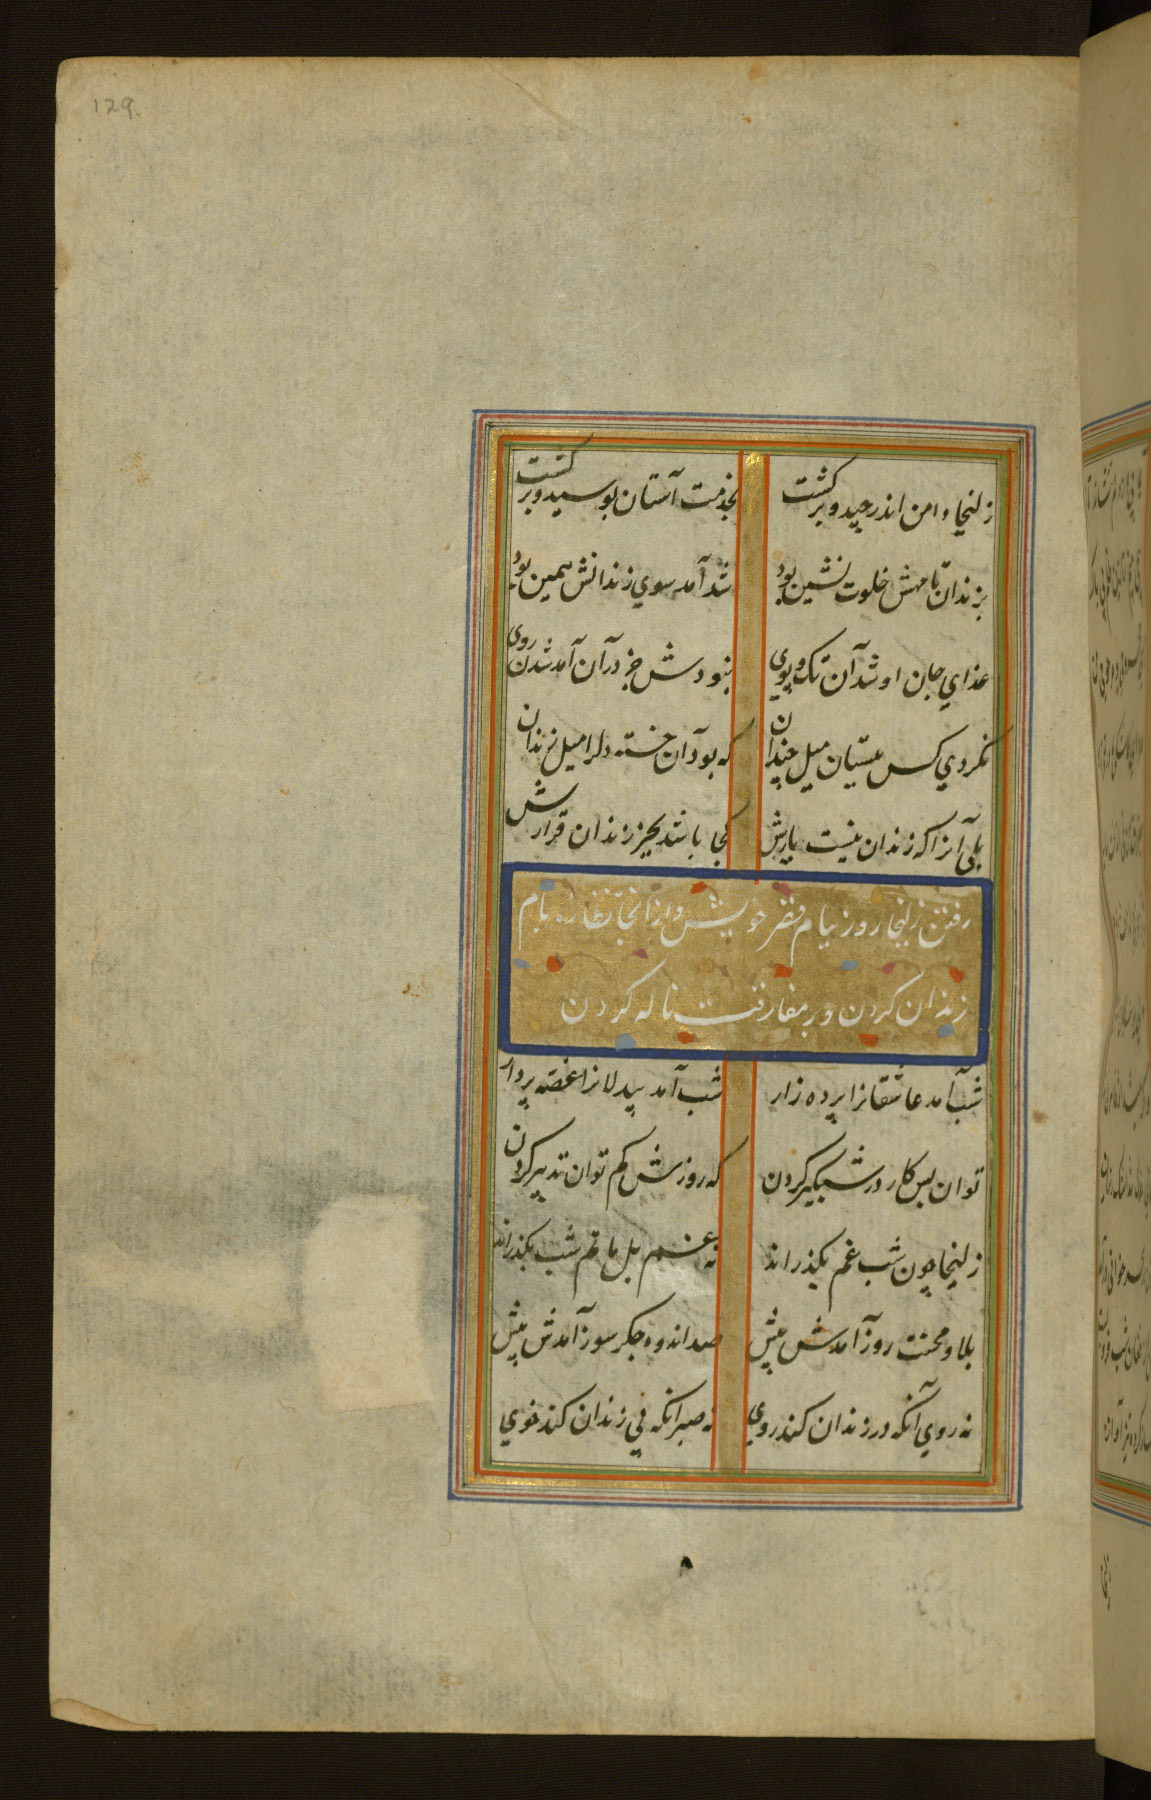 129
زلیخا دامن اندر چید و برگشت
بخدمت آستان بوسید و برگشت
بزندان تا مهش خلوت نشین بود
شد آمد سوی زندانش همین بود
غذای جان او شد آن تک و پوی
نبودش جز در آن آمد شدن روی
نکردی کس بستیان میل چندان
که بود آن خسته دلرا میل زندان
بلی آنرا که زندان نیست یارش
کجا باشد بجز زندان قرارش
رفتن زلیخا روز ببام قصر خویش و از انجا نظاره بام
زندان کردن و بر مفارقت ناله کردن
شب آمد عاشقانرا پرده زار
شب آمد بیدلانرا غصه پرداز
توان بس کار در شبگیر کردن
که روزش کم توان تدبیر کردن
زلیخا چون شب غم بگذراند
نه غم بل ماتم شب بگذراند
بلا و محنت روز آمدش پیش
صد اندوه جگر سوز آمدش پیش
نه روی آنکه در زندان کند روی
نه صبر انکه بی زندان کند خوی